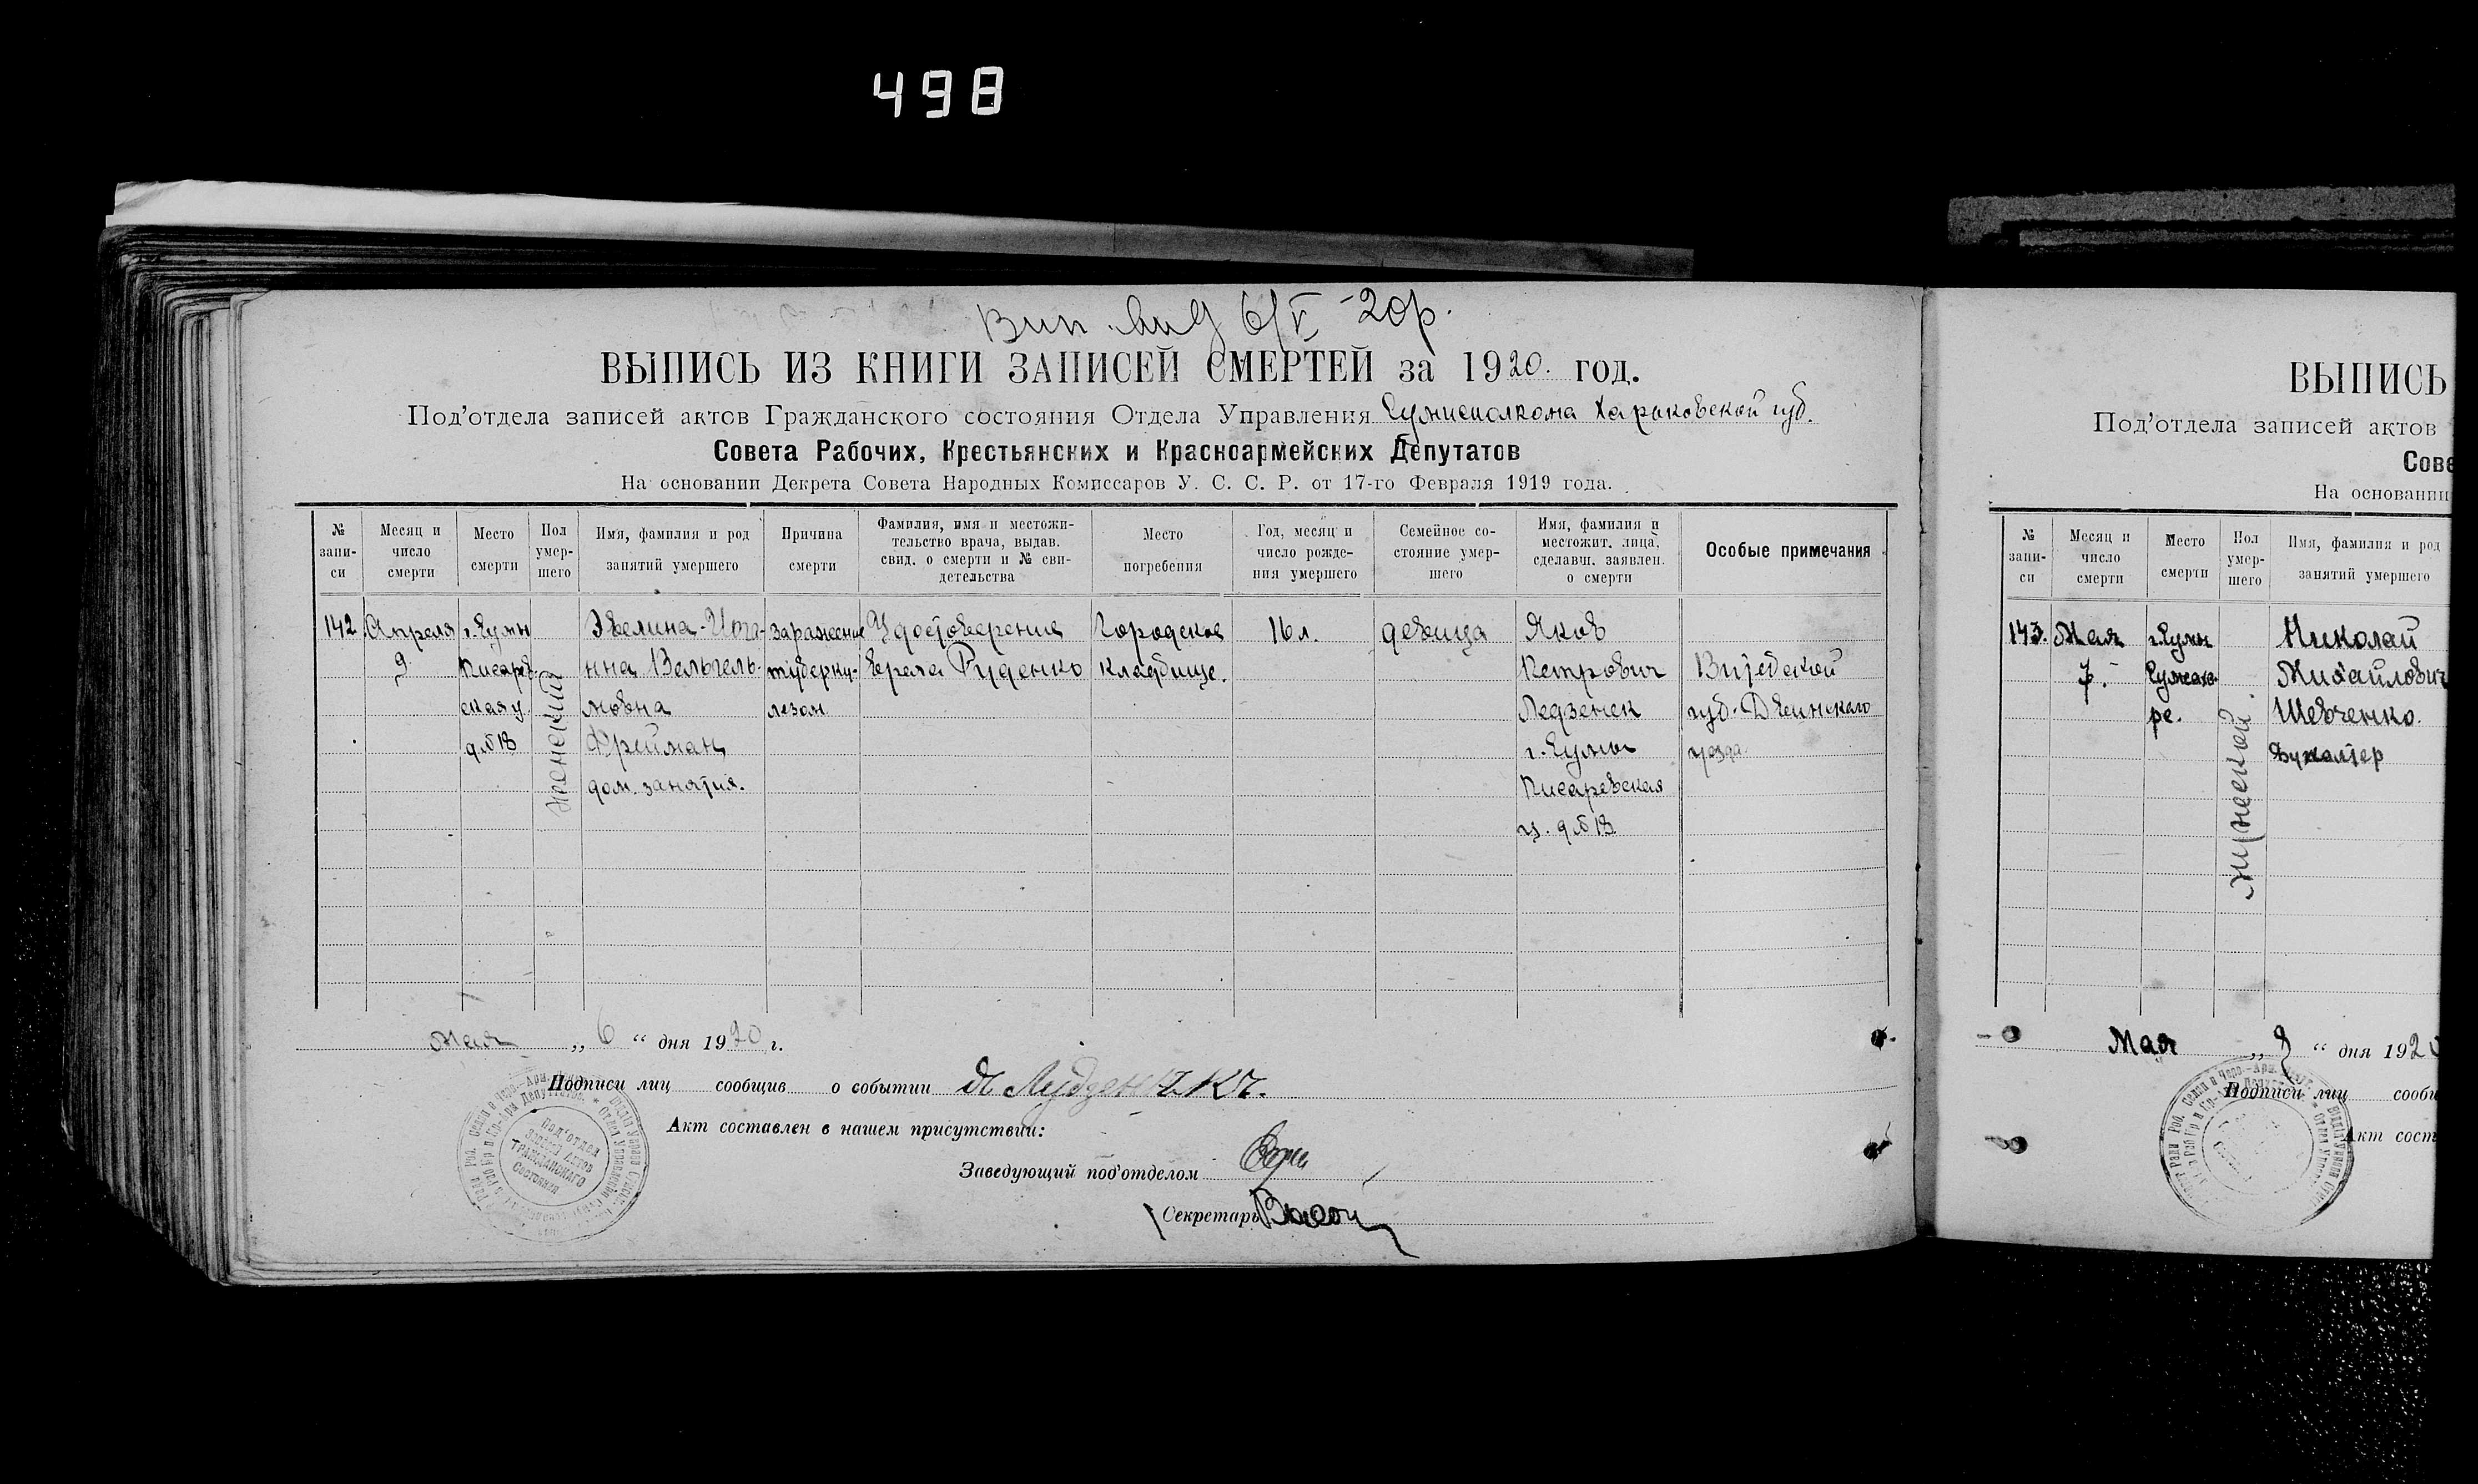 498
Вип. вид 6/V -20р.
ВЫПИСЬ ИЗ КНИГИ ЗАПИСЕЙ СМЕРТЕЙ за 1920. год.
Под'отдела записей актов Гражданского состояния Отдела Управления Сумисполкома Харьковской губ.
Совета Рабочих, Крестьянских и Красноармейских Депутатов
На основании Декрета Совета Народных Комиссаров У. С. С. Р. от 17-го Февраля 1919 года.
№ запи-си
Месяц и число смерти
Место смерти
Пол умер-шего
Имя, фамилия и род занятий умершего
Причина смерти
Фамилия, имя и местожи-тельство врача, выдав. свид. о смерти и № сви-детельства
Место погребения
Год, месяц и число рожде-ния умершего
Семейное со-стояние умер-шего
Имя, фамилия и местожит. лица, сделавш. заявлен. о смерти
Особые примечания
142
Апреля
9
г. Сумы
Писарев-
ская у.
д №18
женский
Эвелина-Иога-
нна Вельгель-
мовна
Фрейман
дом. занятия.
заражение
туберку-
лезом
Удостоверение
врача Руденко
Городское
кладбище.
16 л.
девица
Яков
Петрович
Ледзенек
г. Сумы
Писаревская
у. д №18
Витебской
губ. Двинского
уезда
Мая „ 6 “ дня 1920 г.
Подписи лиц сообщив о событии
Акт составлен в нашем присутствии:
Заведующий под'отделом
Секретарь
Под'отдел
Записей Актов
ГРАЖДАНСКАГО
Состояния
ВЫПИСЬ
Под'отдела записей актов
Сове
На основании
№ запи-си
Месяц и число смерти
Место смерти
Пол умер-шего
Имя, фамилия и род занятий умершего
143.
Мая
7.
г. Сумы
ре.
мужеский.
Николай
Михайлович
Шевченко.
Бухалтер
Мая „ 9 “ дня 192
Подписи лиц сообщ
Акт сост